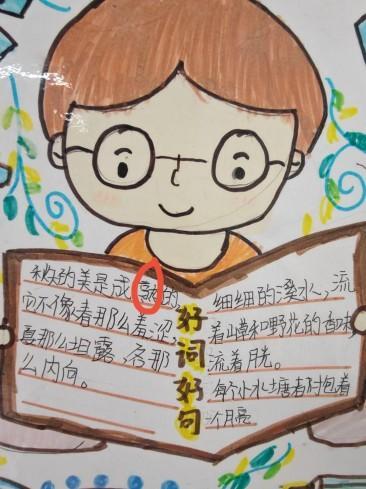 秋的美是成熟的
它不像春那么羞涩,
夏那么坦露,冬那
么内向。
好词好句
细细的溪水、流
着山草和野花的香味
流着月光。
每个小水塘都抱着
个月亮